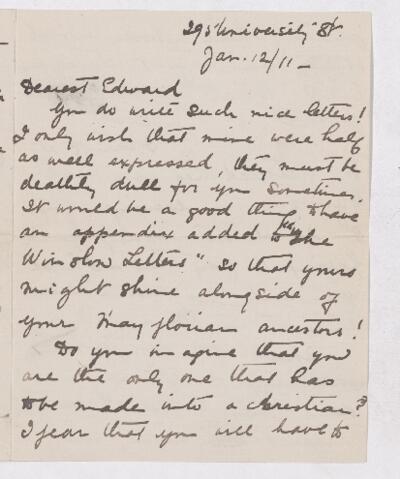 295 University St.
Jan. 12/11 –
Dearest Edward
You do write such nice letters!
I only wish that mine were half
as well expressed, they must be
deathly dull for you sometimes.
It would be a good thing to have
an appendix added to "the
Winslow Letters" so that yours
might shine alongside of
your Mayflorian ancestors!
Do you imagine that you
are the only one that has
to be made into a Christian?
I fear that you will have to